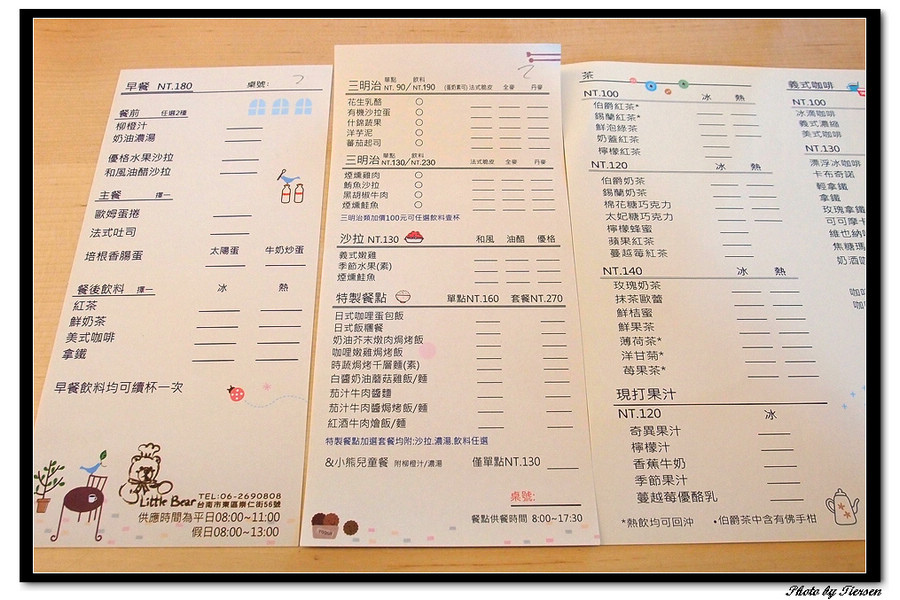 早餐 NT.180 桌號:
餐前 任選2種
柳橙汁
奶油濃湯
優格水果沙拉
和風油醋沙拉
主餐 擇一
歐姆蛋捲
法式吐司
培根香腸蛋 太陽蛋 牛奶炒蛋
餐後飲料 擇一 冰 熱
紅茶
鮮奶茶
美式咖啡
拿鐵
早餐飲料均可續杯一次
Little Bear
TEL:06-2690808
台南市東區崇仁街55號
供應時間為平日08:00~11:00
假日08:00~13:00
三明治 單點 NT. 90/ 飲料 NT.190 (蛋奶素可) 法式脆皮 全麥 丹麥
花生乳酪
有機沙拉蛋
什錦蔬果
洋芋泥
蕃茄起司
三明治 單點 NT.130/ 飲料 NT.230 法式脆皮 全麥 丹麥
煙燻雞肉
鮪魚沙拉
黑胡椒牛肉
煙燻鮭魚
三明治類加價100元可任選飲料壹杯
沙拉 NT.130 和風 油醋 優格
義式嫩雞
季節水果(素)
煙燻鮭魚
特製餐點 單點NT.160 套餐NT.270
日式咖哩蛋包飯
日式飯糰餐
奶油芥末燉肉焗烤飯
咖哩嫩雞焗烤飯
時蔬焗烤千層麵(素)
白醬奶油蘑菇雞飯/麵
茄汁牛肉醬麵
茄汁牛肉醬焗烤飯/麵
紅酒牛肉燴飯/麵
特製餐點加選套餐均附:沙拉.濃湯.飲料任選
&小熊兒童餐 附柳橙汁/濃湯 僅單點NT.130
桌號:
餐點供餐時間 8:00~17:30
茶
NT.100 冰 熱
伯爵紅茶*
錫蘭紅茶*
鮮泡綠茶
奶蓋紅茶
檸檬紅茶
NT.120 冰 熱
伯爵奶茶
錫蘭奶茶
棉花糖巧克力
太妃糖巧克力
檸檬蜂蜜
蘋果紅茶
蔓越莓紅茶
NT.140 冰 熱
玫瑰奶茶
抹茶歐蕾
鮮桔蜜
鮮果茶
薄荷茶*
洋甘菊*
莓果茶*
現打果汁
NT.120 冰
奇異果汁
檸檬汁
香蕉牛奶
季節果汁
蔓越莓優酪乳
*熱飲均可回沖 •伯爵茶中含有佛手柑
義式咖啡
NT.100
冰滴咖啡
義式濃縮
美式咖啡
NT.130
漂浮冰咖啡
卡布奇諾
輕拿鐵
拿鐵
玫瑰拿鐵
可可摩卡
維也納
焦糖瑪
奶酒咖
咖
咖
Photo by Tiersen